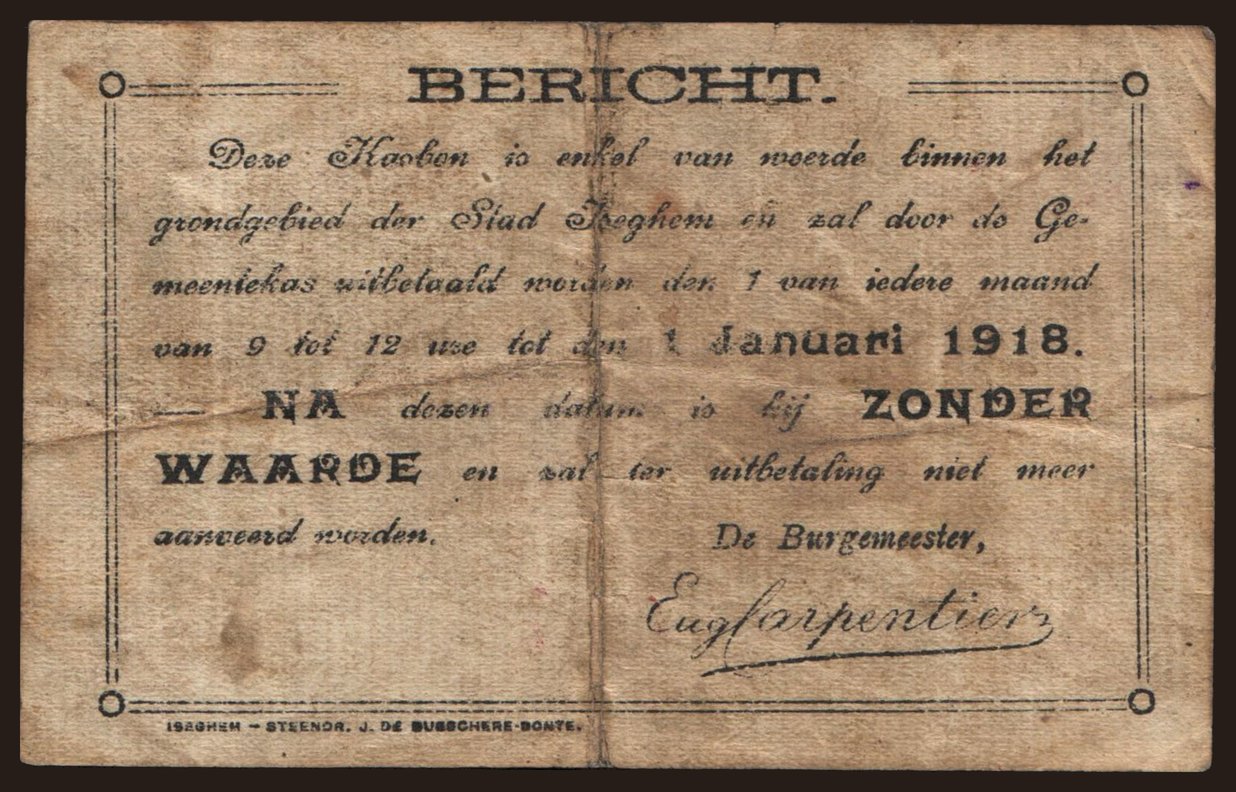 BERICHT.
Deze Kasbon is enkel van weerde binnen het
grondgebied der Stad Iseghem en zal door de Ge-
meentekas uitbetaald worden den 1 van iedere maand
van 9 tot 12 ure tot den 1 Januari 1918.
— NA dezen datum is hij ZONDER
WAARDE en zal ter uitbetaling niet meer
aanveerd worden.
De Burgemeester,
Eug Carpentier
ISEGHEM — STEENDR. J. DE BUSSCHERE-BONTE.